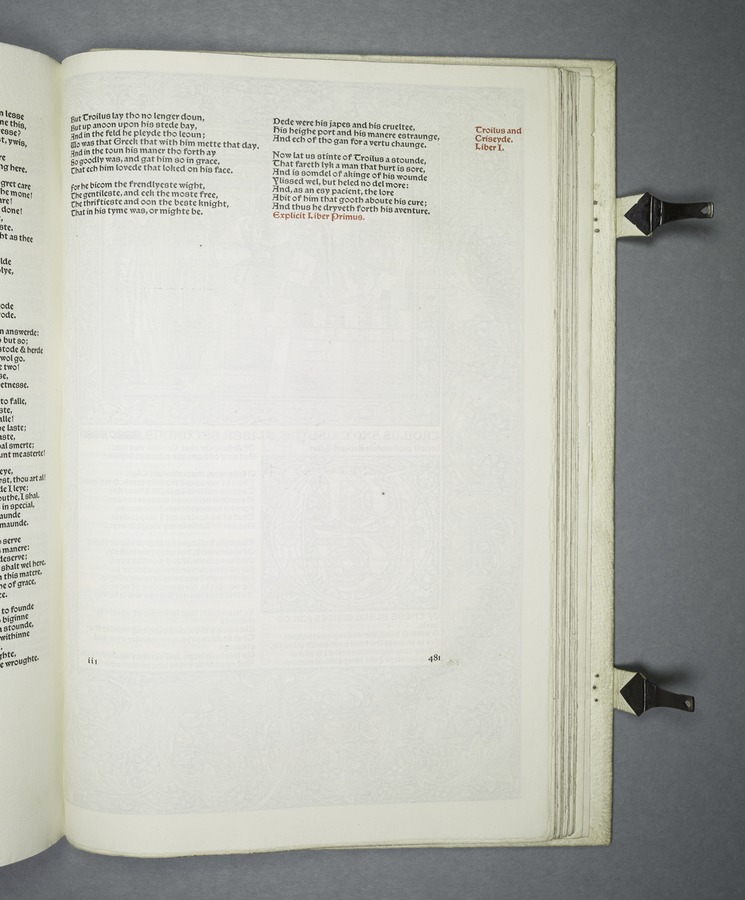 n lesse
ne this,
esse?
t, ywis,
re
ng here,
gret care
he mone!
are!
done!
ste.
ht as thee
lde
lye,
ode
ode.
n answerde:
but so;
stode & herde
wol go.
e two!
se,
etnesse.
to falle,
ste,
alle!
e laste;
aste,
al smerte;
unt measterte!
eye,
est, thou art al!
de I leye;
outhe, I shal,
in special,
aunde
maunde.
serve
manere:
deserve;
shalt wel here,
this matere,
ne of grace,
ce.
to founde
biginne
stounde,
withinne
ghte,
e wroughte.
But Troilus lay tho no lenger doun,
But up anoon upon his stede bay,
And in the feld he pleyde tho leoun;
Wo was that Greek that with him mette that day.
And in the toun his maner tho forth ay
So goodly was, and gat him so in grace,
That ech him lovede that loked on his face.
For he bicom the frendlyeste wight,
The gentileste, and eek the moste free,
The thriftieste and oon the beste knight,
That in his tyme was, or mighte be.
Dede were his japes and his crueltee,
His heighe port and his manere estraunge,
And ech of tho gan for a vertu chaunge.
Now lat us stinte of Troilus a stounde,
That fareth lyk a man that hurt is sore,
And is somdel of akinge of his wounde
Ylissed wel, but heled no del more:
And, as an esy pacient, the lore
Abit of him that gooth aboute his cure;
And thus he dryveth forth his aventure.
Explicit Liber Primus.
Troilus and
Criseyde.
Liber I.
ii1
481